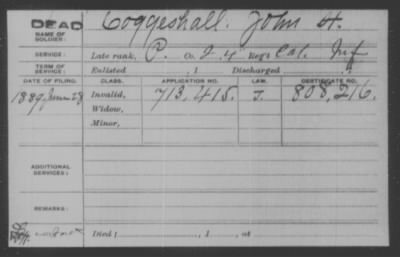 DEAD Coggeshall, John H.
NAME OF SOLDIER:
SERVICE: Late rank, P. Co. 2, 4" Reg't Cal. Inf
TERM OF SERVICE: Enlisted , 1 Discharged , 1
DATE OF FILING. CLASS. APPLICATION NO. LAW. CERTIFICATE NO.
1889, June 28 Invalid, 713,415. J. 808,216.
Widow,
Minor,
ADDITIONAL SERVICES:
REMARKS:
Died , 1 , at